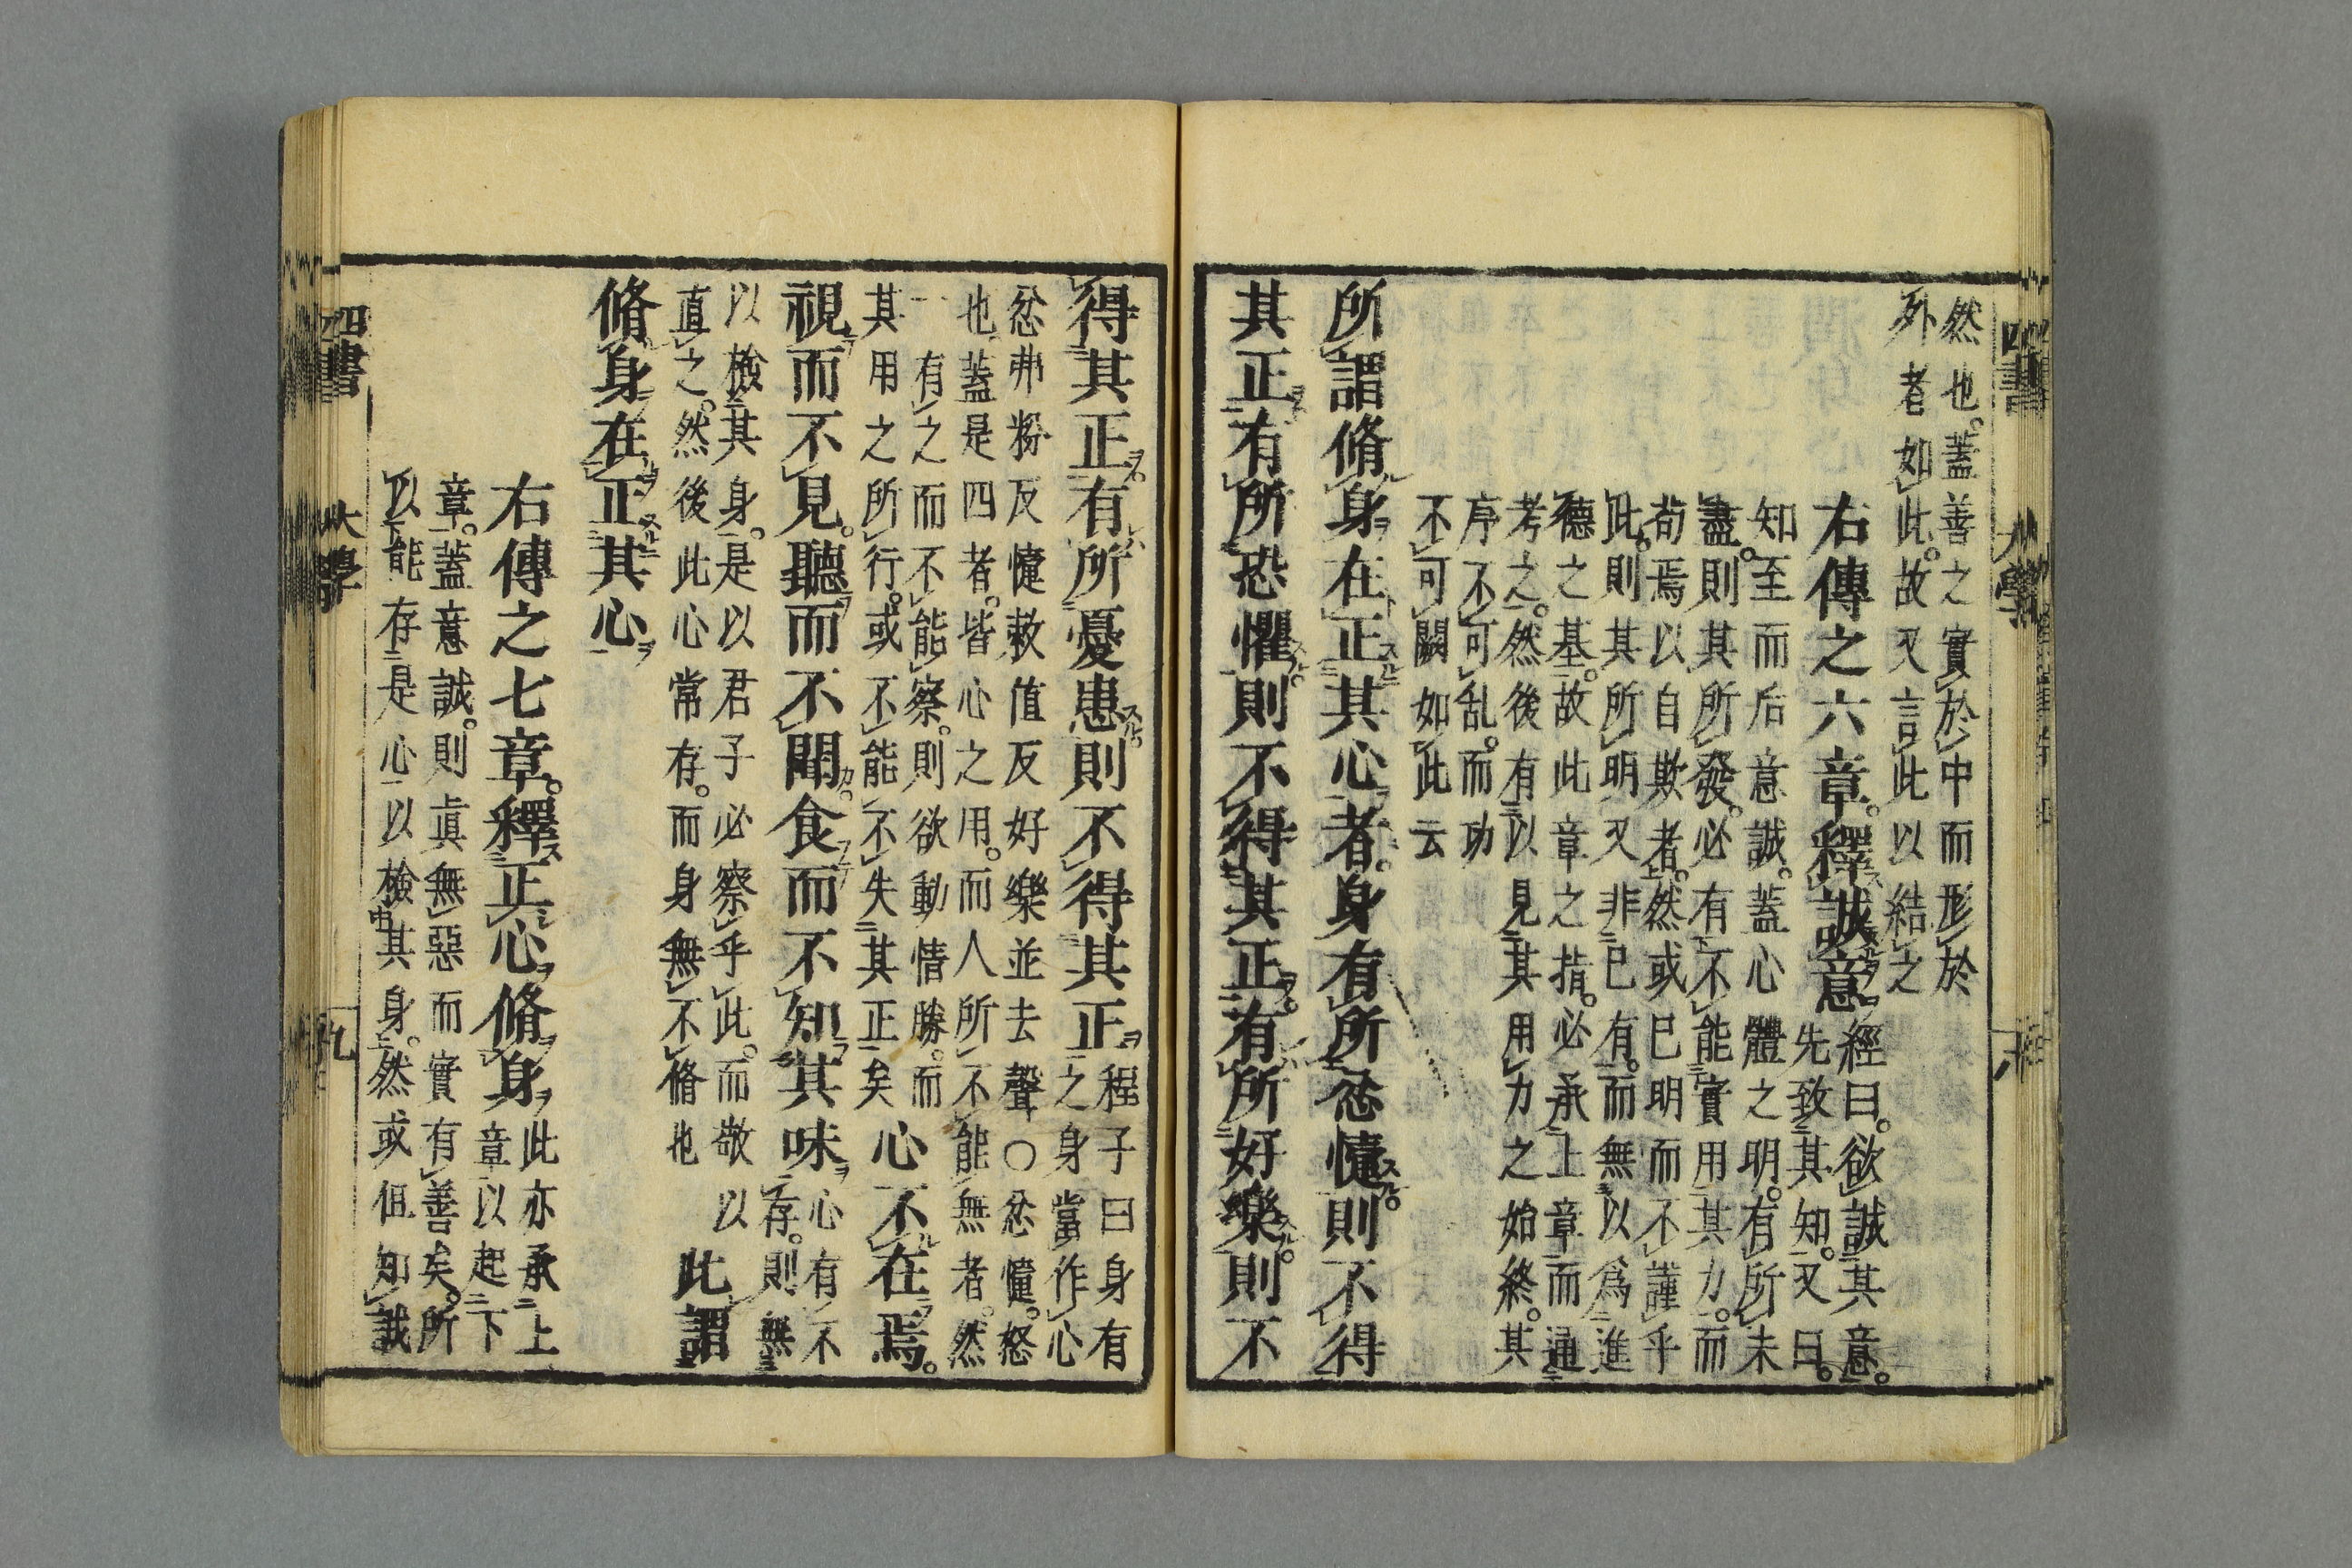 四書　大學　八
然也。蓋善之實於中而形於
外者如此。故又言此以結之
右傳之六章。釋誠意
經曰。欲誠其意。
先致其知。又曰。
知至而后意誠。蓋心體之明。有所未
盡。則其所發。必有不能實用其力。而
苟焉以自欺者。然或已明而不謹乎
此。則其所明又非己有。而無以爲進
德之基。故此章之指。必承上章而通
考之。然後有以見其用力之始終。其
序不可乱。而功
不可闕如此云
所謂脩身在正其心者。身有所忿懥則不得
其正有所恐懼則不得其正。有所好樂則不
得其正有所憂患則不得其正
程子曰身有
之身當作心
忿弗粉反懥敕值反好樂並去聲○忿懥。怒
也蓋是四者。皆心之用。而人所不能無者。然
一有之而不能察。則欲動情勝。而
其用之所行。或不能不失其正矣
心不在焉。
視而不見。聽而不聞食而不知其味
心有不
存。則無
以檢其身。是以君子必察乎此。而敬以
直之。然後此心常存。而身無不脩也
此謂
脩身在正其心
右傳之七章。釋正心脩身
此亦承上
章以起下
章。蓋意誠。則眞無惡而實有善矣。所
以能存是心以檢其身。然或但知誠
四書　大學　九